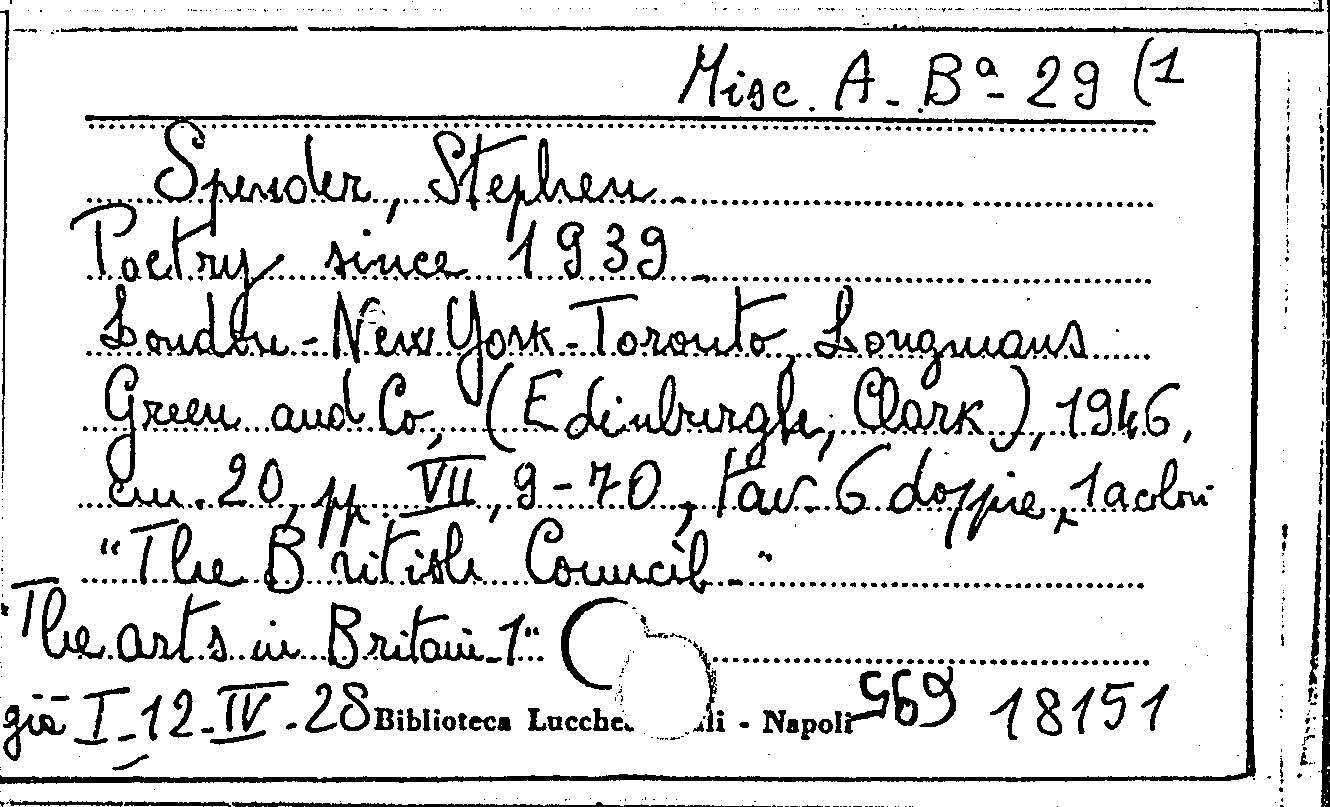 Misc. A. Bª- 29 (1
Spender, Stephen.
Poetry since 1939.
London-New York-Toronto, Longmans
Green and Co, (Edinburgh, Clark), 1946,
cm. 20, pp. VII, 9-70, tav. 6 doppie, 1 a colori
"The British Council."
"The arts in Britain-1"
già I-12-IV-28 Biblioteca Lucche li - Napoli 569 18151